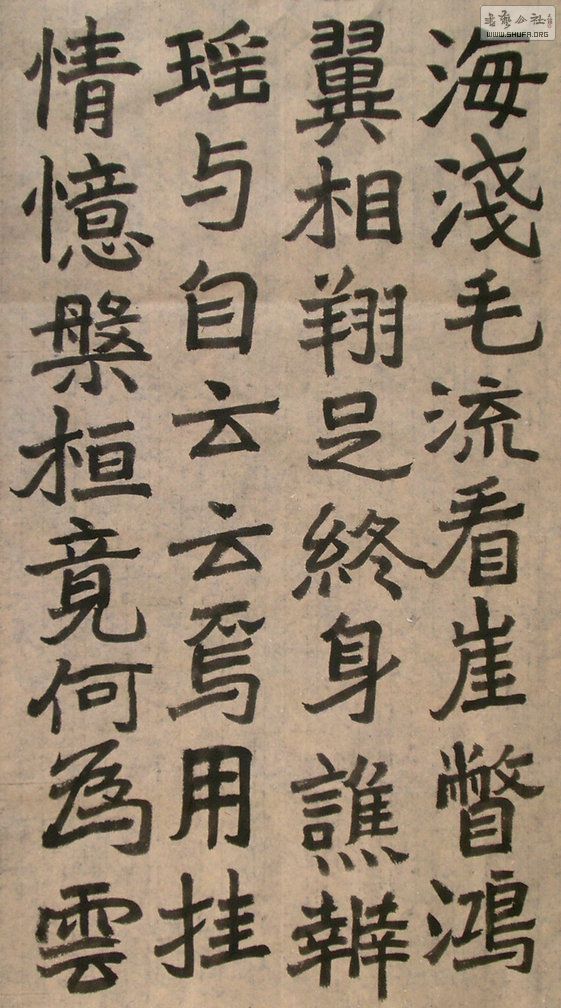 海淺毛流看崖瞥鴻
翼相翔足終身譙辨
瑶与自云云焉用挂
情憶槃桓竟何為雲
书艺公社
WWW.SHUFA.ORG